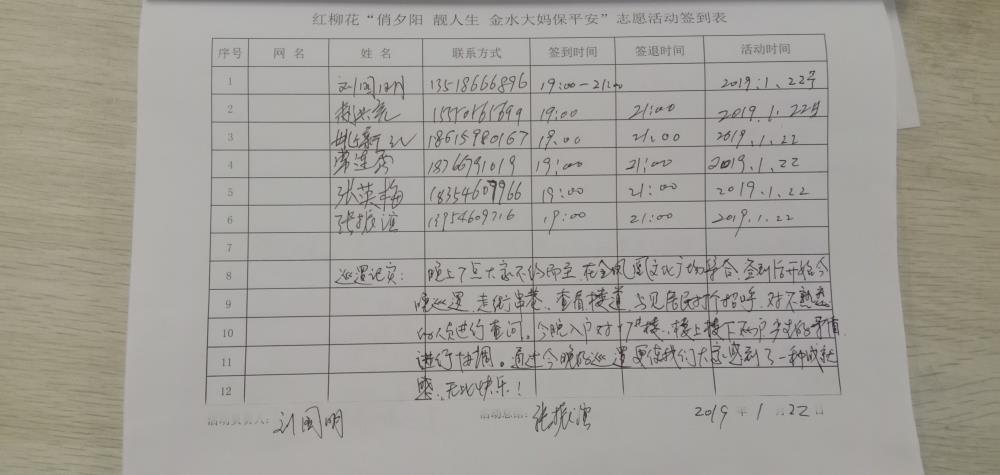 红柳花“俏夕阳 靓人生 金水大妈保平安”志愿活动签到表
序号 网名 姓名 联系方式 签到时间 签退时间 活动时间
1 刘国明 13518666896 19:00-21:00 2019.1.22号
2 19:00 21:00 2019.1.22号
3 18615980167 19:00 21:00 2019.1.22
4 常连秀 18766791019 19:00 21:00 2019.1.22
5 张英梅 18354607966 19:00 21:00 2019.1.22
6 张振滨 13954609716 19:00 21:00 2019.1.22
7
8 巡逻记实: 晚上7点大家不约而至,在金凤凰文化广场集合,签到后开始今
9 晚巡逻,走街串巷、查看楼道,上见居民打个招呼,对不熟悉
10 的人员进行查问。今晚入户对17#楼、楼上楼下两户发生的矛盾
11 进行协调。通过今晚的巡逻更使我们大家感到了一种成就
12 感、无比快乐!
活动负责人: 刘国明 活动总结: 张振滨 2019年1月22日